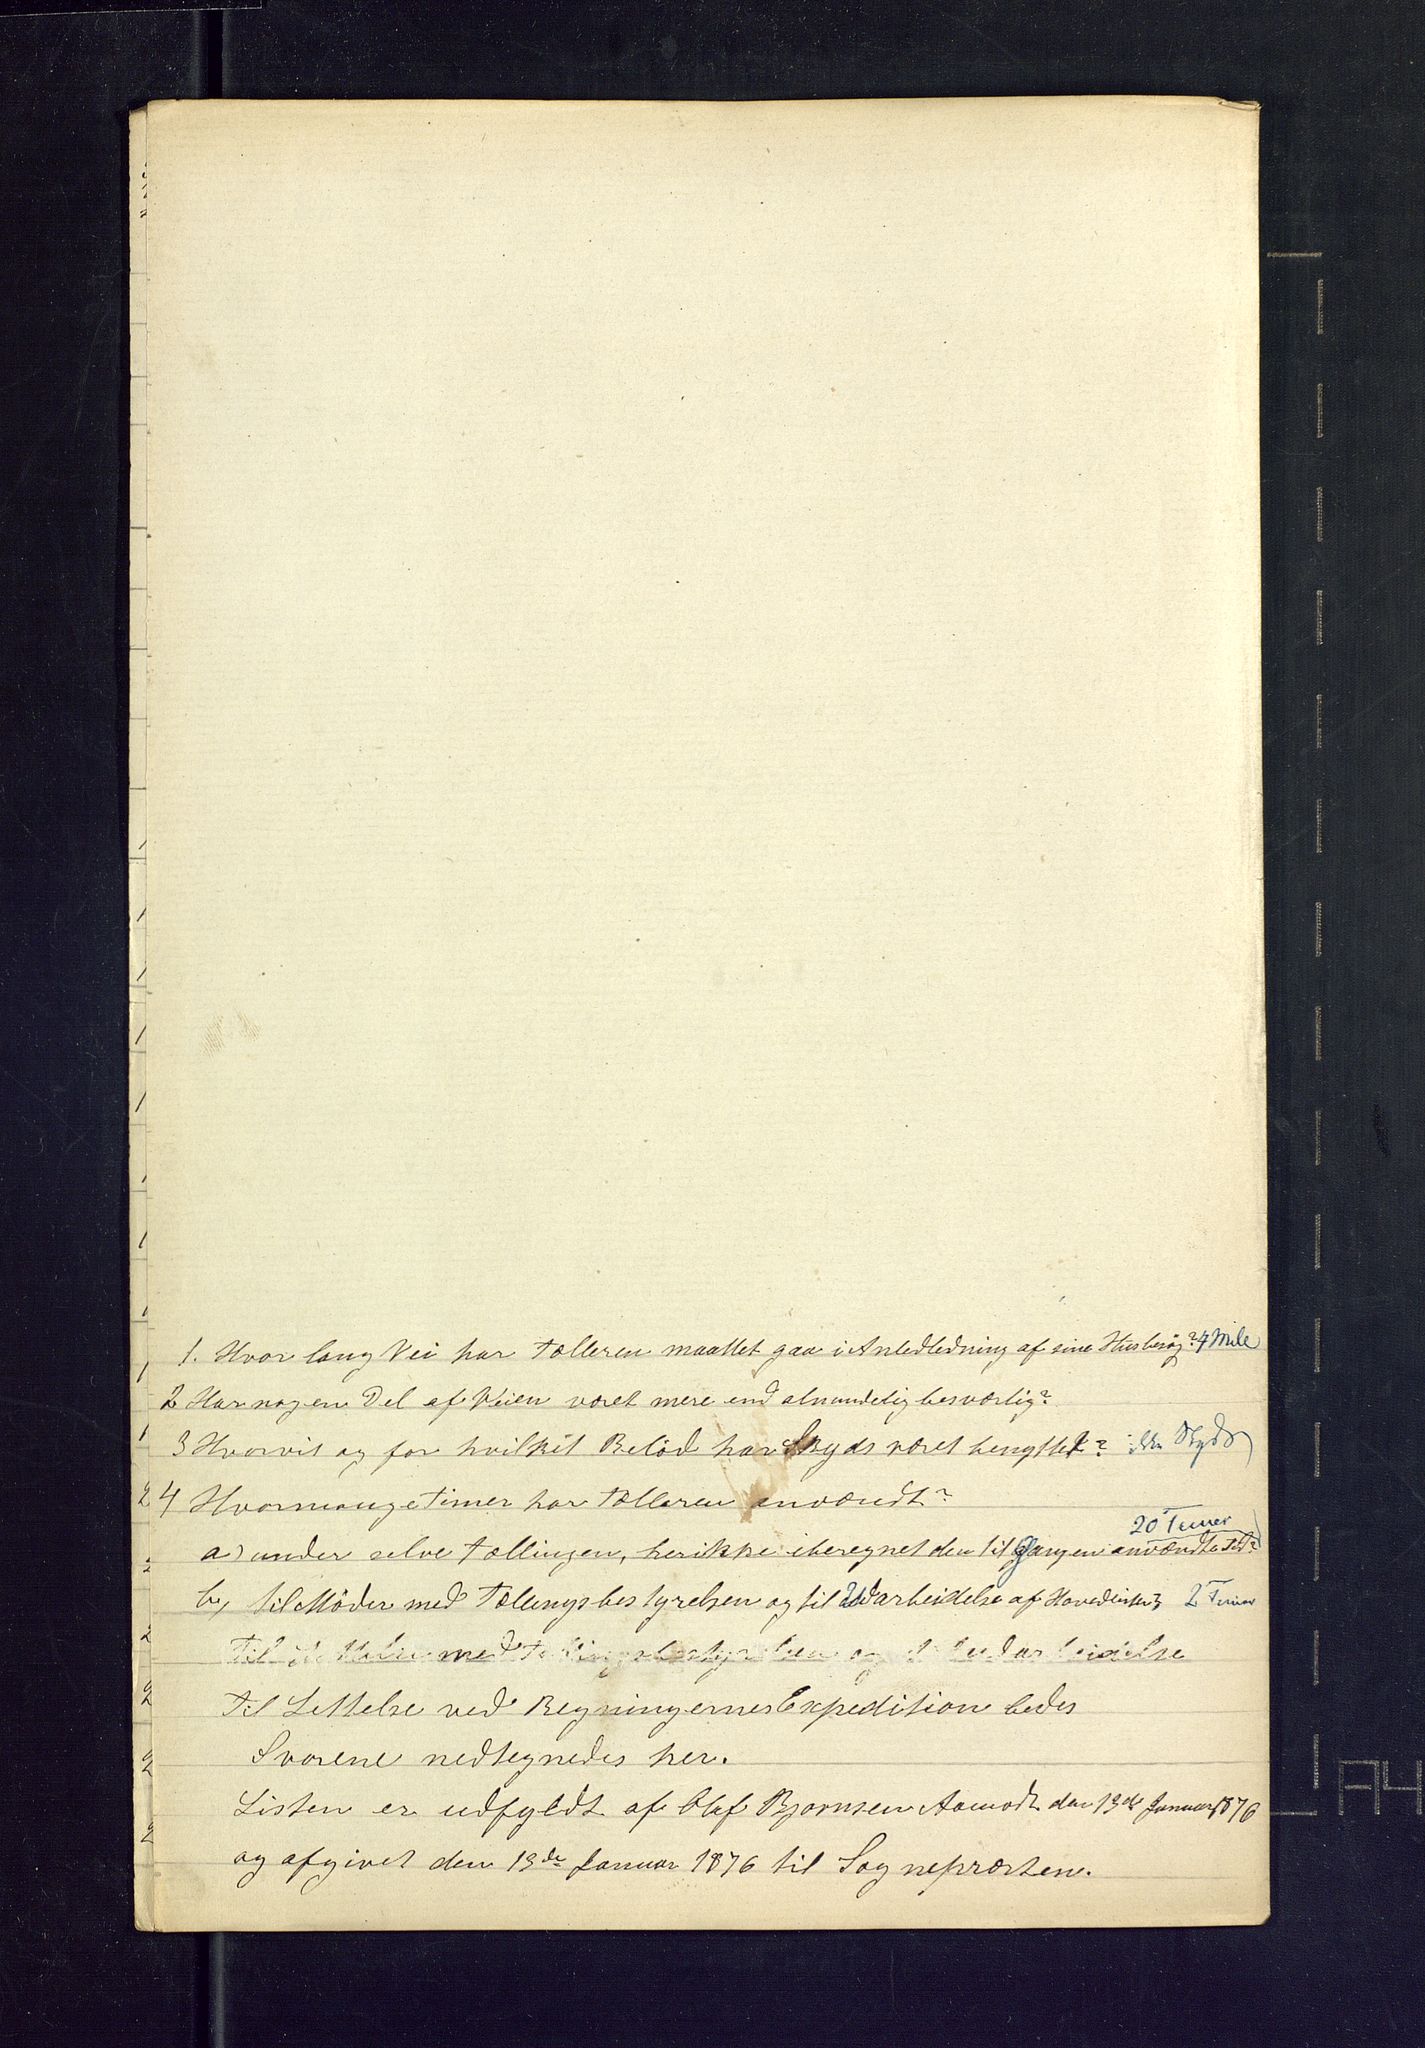 1. Hvor lang Vei har Tælleren maattet gaa i Anledledning af sine Husbesøg? 4 Mile
2 Har nogen Del af Veien været mere end almindelig besværlig?
3 Hvorvit og for hvilket Beløb har Skyds været benyttet? ikke Skyds
4 Hvormange Timer har Tælleren anvændt?
20 Timer
a) under selve Tællingen, heri ikke iberegnet den til Gangen anvændte Tid?
b, til Møder med Tællingsbestyrelsen og til Udarbeidelse af Hovedlisten? 2 Timer
Til med Tællingsbestyrelsen og udarbeidelse
Til Lettelse ved Regningernes Expedition bedes
Svarene nedtegnedes her.
Listen er udfyldt af Olaf Bjørnsen Aamodt den 13de Januar 1876
og afgivet den 13de Januar 1876 til Sognepræsten.